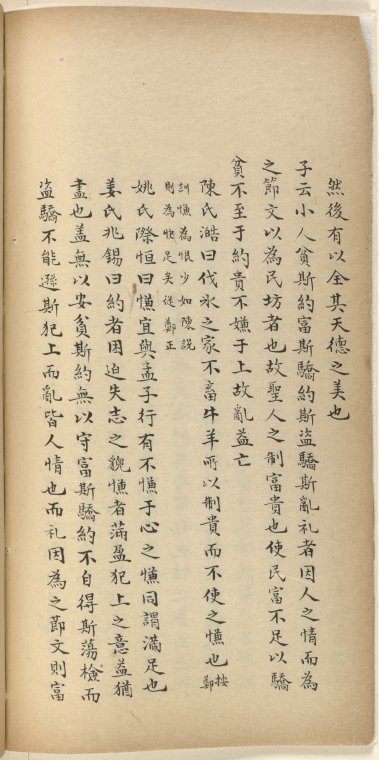 然後有以全其天德之美也
子云小人貧斯約富斯驕約斯盜驕斯亂礼者因人之情而為
之節文以為民坊者也故聖人之制富貴也使民富不足以驕
貧不至于約貴不嫌于上故亂益亡
陳氏澔曰伐氷之家不畜牛羊所以制貴而不使之慊也按鄭
訓慊為恨少如陳說
則為快足矣從鄭正
姚氏際恒曰慊宜與孟子行有不慊于心之慊同謂滿足也
姜氏兆錫曰約者困迫失志之貌慊者蒲盈犯上之意益猶
盡也盖無以安貧斯約無以守富斯驕約不自得斯蕩檢而
盜驕不能遜斯犯上而亂皆人情也而礼因為之節文則富